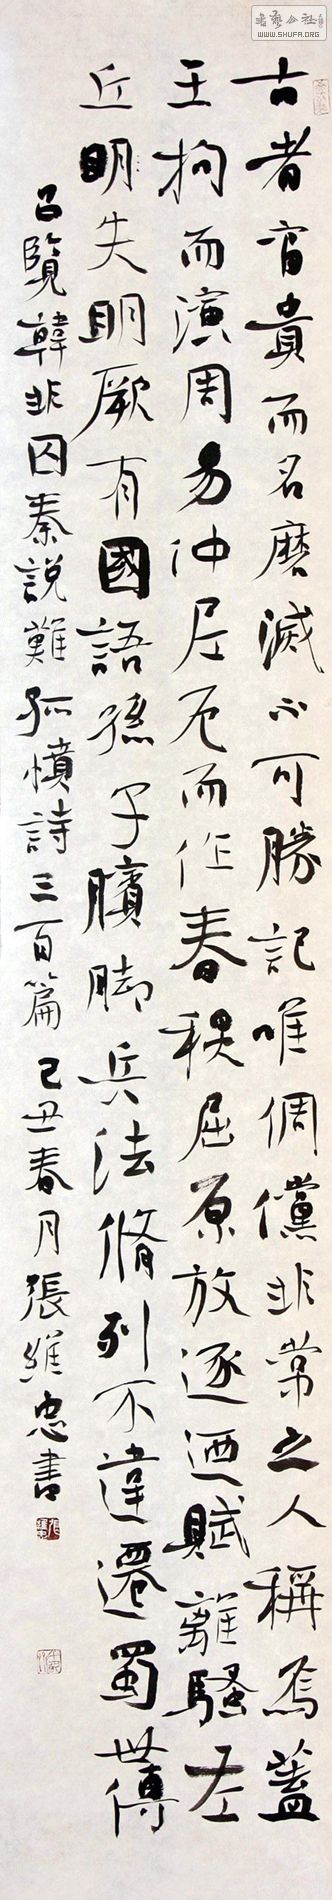 古者富貴而名磨滅不可勝記唯倜儻非常之人稱焉蓋
王拘而演周易仲尼厄而作春秋屈原放逐迺賦離騷左
丘明失明厥有國語孫子臏脚兵法脩列不違遷蜀世傳
呂覽韓非囚秦說難孤憤詩三百篇 己丑春月張維忠書
書藝公社
WWW.SHUFA.ORG